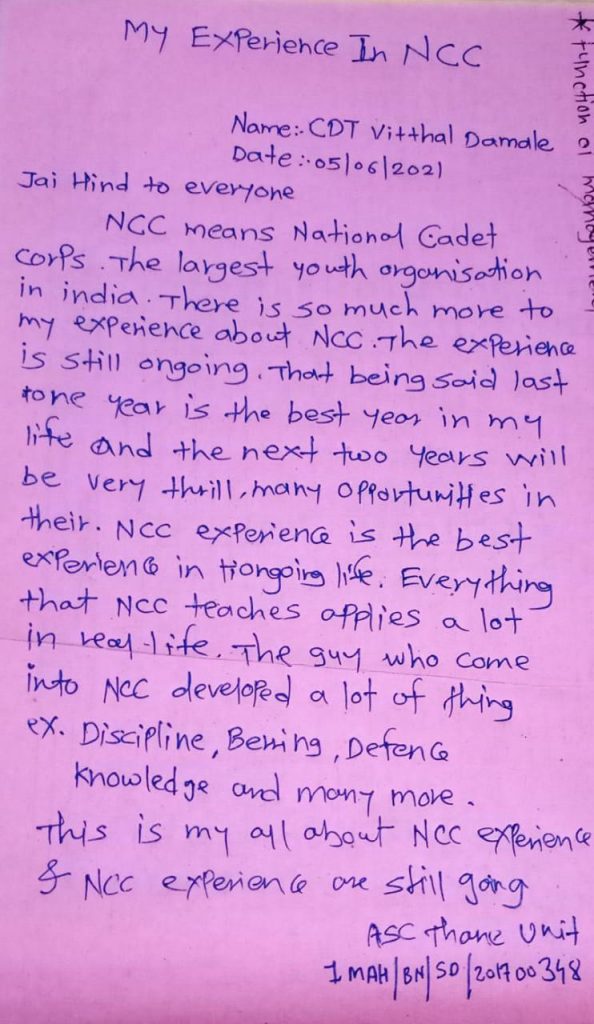 My Experience In NCC
* Function of management
Name:- CDT Vitthal Damale
Date :- 05/06/2021
Jai Hind to everyone
NCC means National Cadet
corps. The largest youth organisation
in india. There is so much more to
my experience about NCC. The experience
is still ongoing. That being said last
one year is the best year in my
life and the next two years will
be very thrill, many opportunities in
their. NCC experience is the best
experience in ongoing life. Everything
that NCC teaches applies a lot
in real-life. The guy who come
into NCC developed a lot of thing
ex. Discipline, Bening, Defence
knowledge and many more.
This is my all about NCC experience
& NCC experience are still going
ASC Thane Unit
1 MAH/BN/SD/201700348